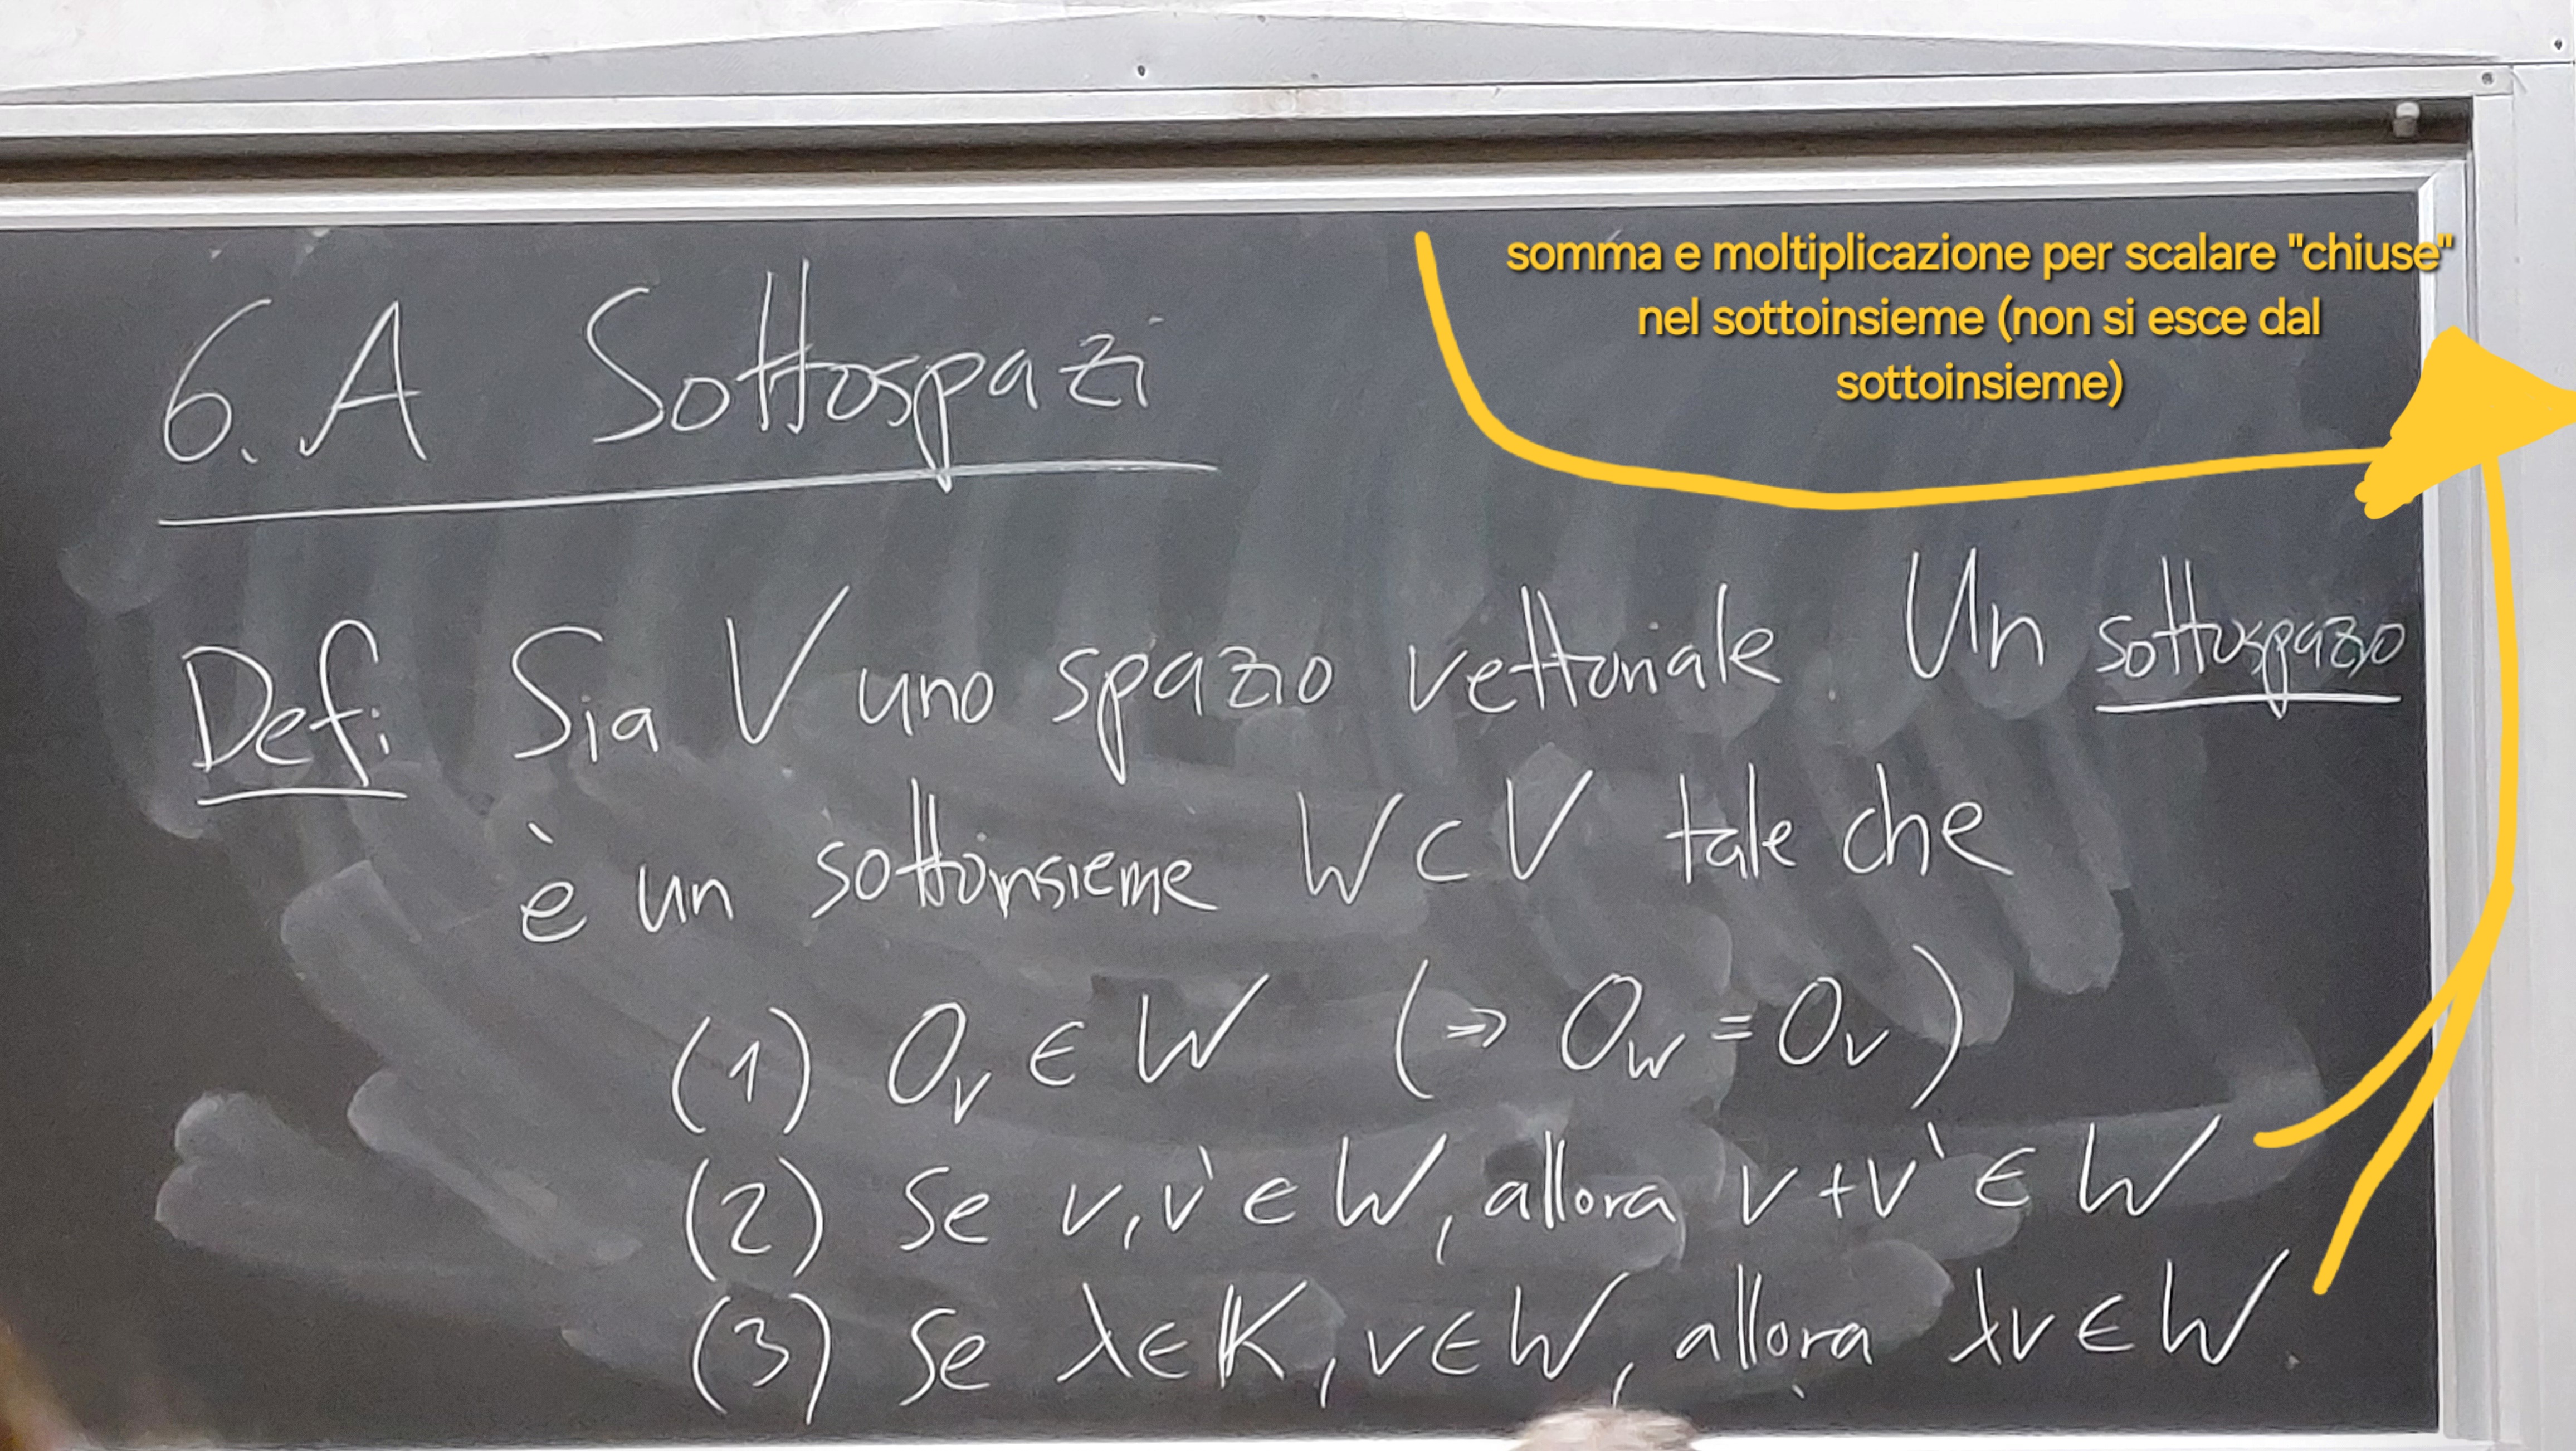 somma e moltiplicazione per scalare "chiuse"
nel sottoinsieme (non si esce dal
sottoinsieme)
6.A Sottospazi
Def: Sia V uno spazio vettoriale. Un sottospazio
è un sottoinsieme W ⊂ V tale che
(1) 0_V ∈ W (⇒ 0_W = 0_V)
(2) Se v, v' ∈ W, allora v + v' ∈ W
(3) Se λ ∈ 𝕂, v ∈ W, allora λv ∈ W.